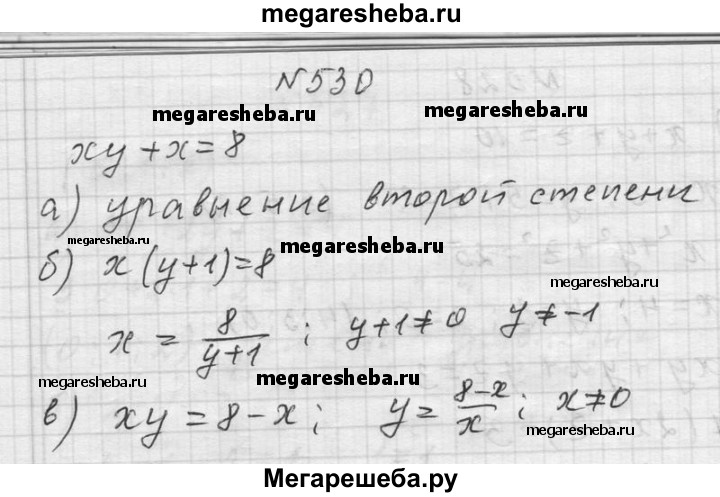 megaresheba.ru
№530
megaresheba.ru megaresheba.ru
xy+x=8
а) уравнение второй степени
megaresheba.ru megaresheba.ru
б) x(y+1)=8
megaresheba.ru
x = 8/(y+1) ; y+1≠0 y≠-1
megaresheba.ru megaresheba.ru
в) xy=8-x; y=(8-x)/x; x≠0
megaresheba.ru
Мегарешеба.ру